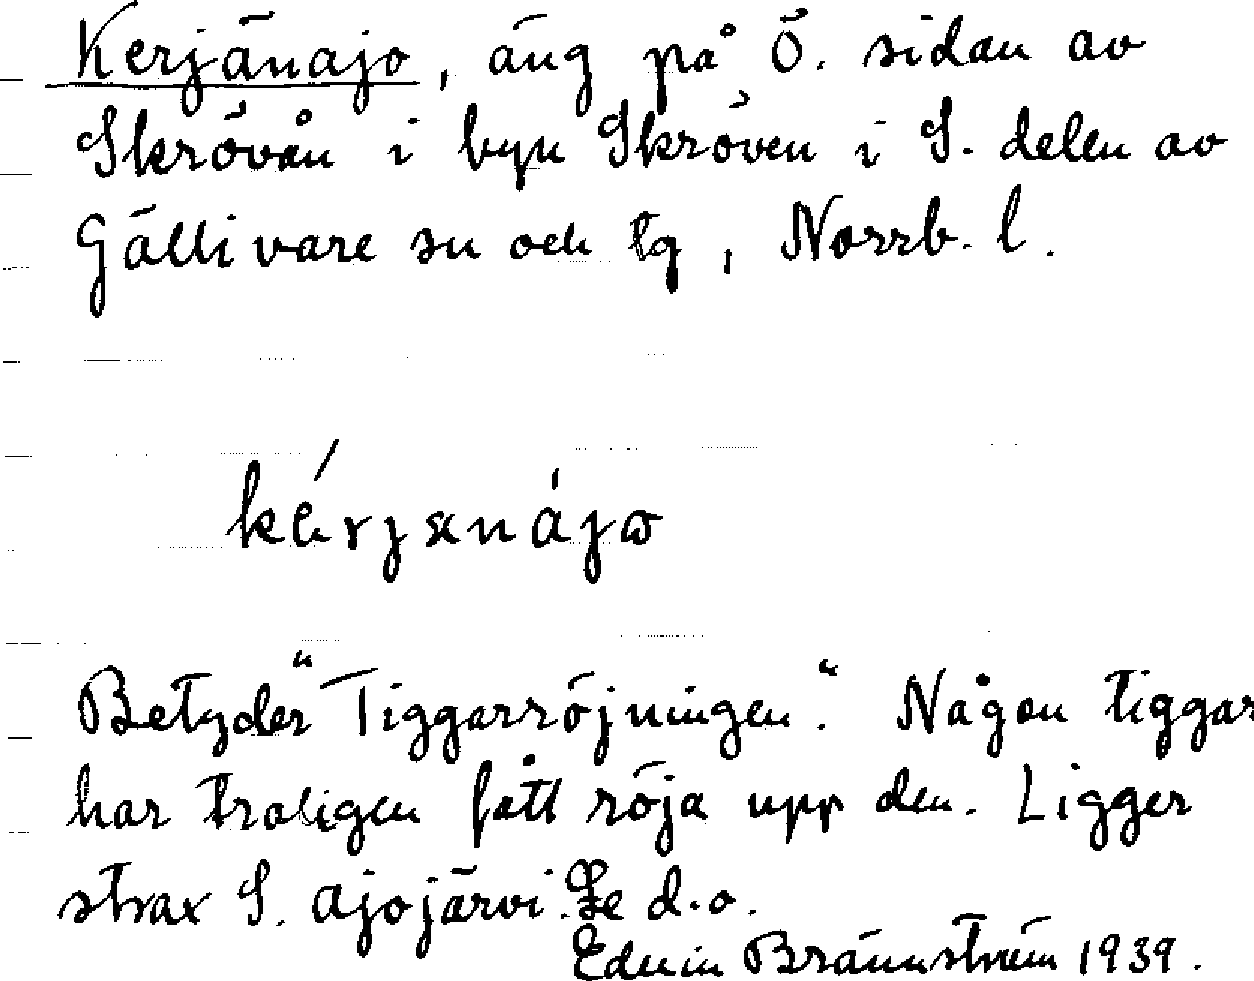 Kerjänajo, äng på Ö. sidan av
Skrövån i byn Skröven i S. delen av
Gällivare sn och tg, Norrb. l.
Betyder "Tiggarröjningen". Någon tiggar
har troligen fått röja upp den. Ligger
strax S. Ajojärvi. Se d.o.
Edvin Brännström 1939.